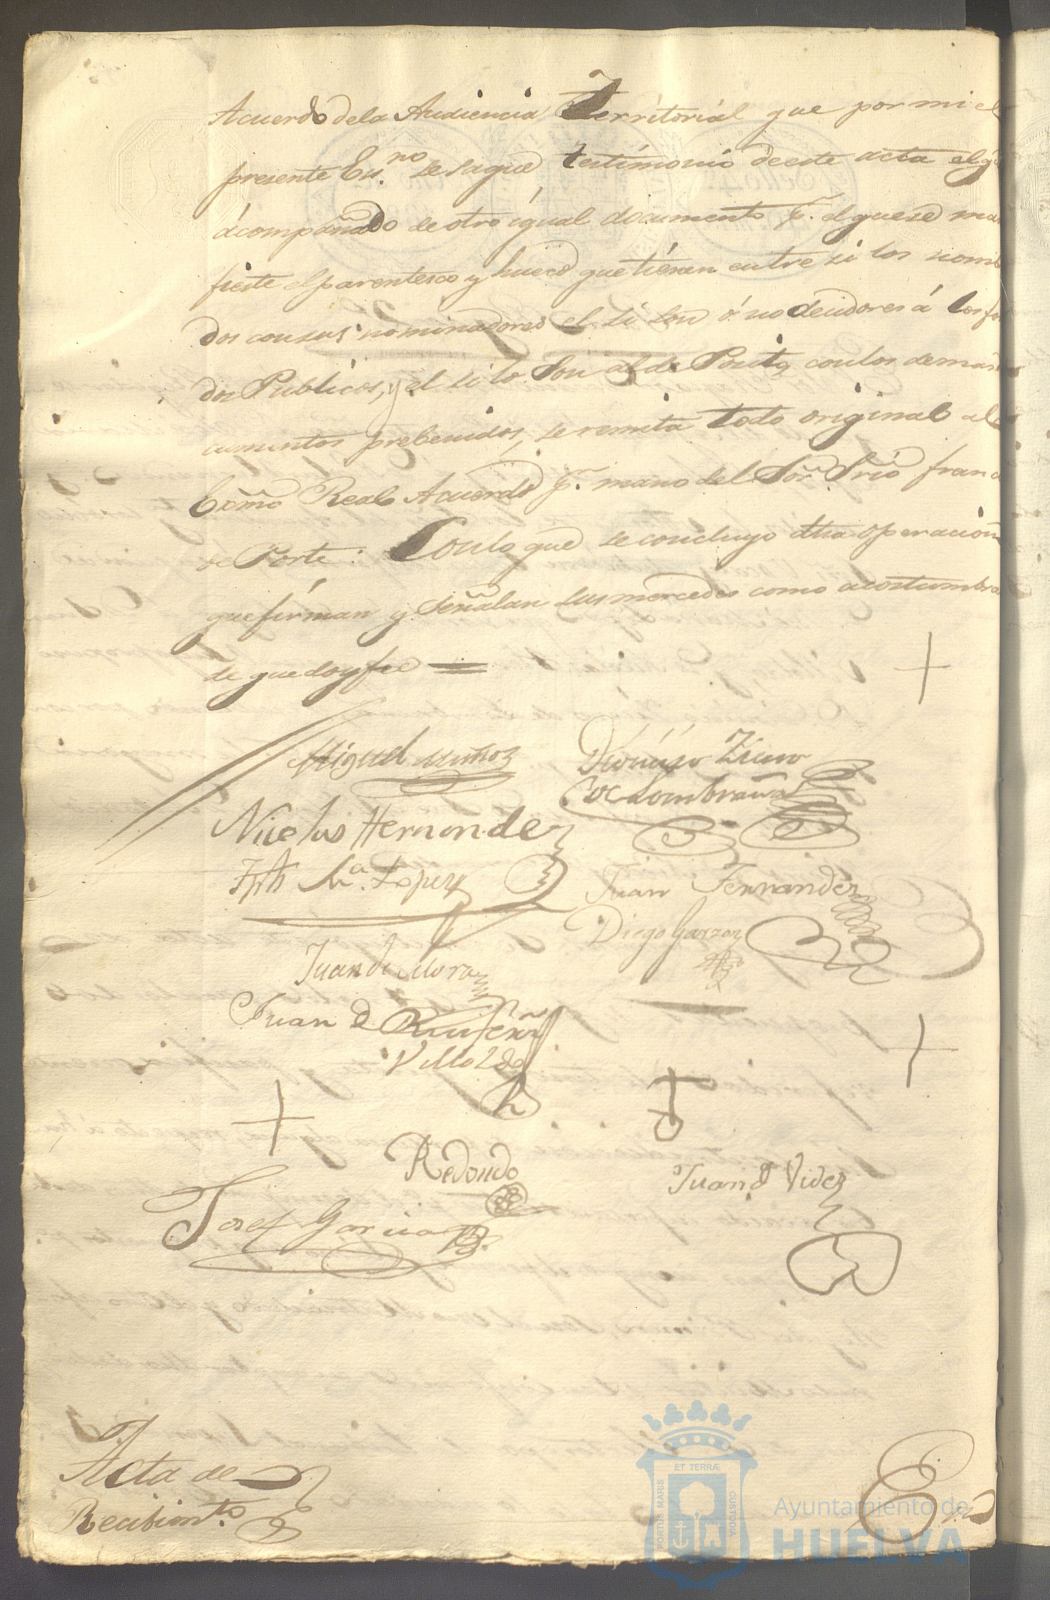 Acuerdo de la Audiencia Territorial que por mi el
presente Es.no se saque testimonio de este acta el q
acompañado de otro igual documento p.r el que se ma
fieste el parentesco y hueco que tienen entre si los nomb
dos con sus nominadores el si son ó no deudores á los fon
dos Publicos, y el si lo son al de Posito, con los demas
cumentos prebenidos, se remita todo original al
Exmo Real Acuerdo p.r mano del Sor. Srio franco
de Porte: Con lo que se concluyo dha operacion
que firman y señalan sus mercedes como acostumbra
de que doy fee =
Miguel Muñoz
Dionisio
de Lombraña
Nicolas Hernandez
Ma. Lopez
Juan Fernandez
Diego Garzon
Juan de Mora
Juan d
Redondo
Juan d Vides
Josef Garcia
Acta de
Recibim.to
En
PORTUS MARIS
ET TERRÆ
CUSTODIA
Ayuntamiento de
HUELVA